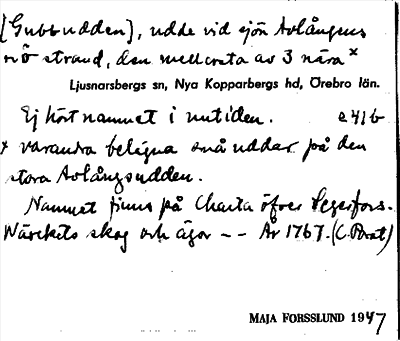 [Gubbudden], udde vid sjön Avlångens
nö strand, den mellersta av 3 nära x
Ljusnarsbergs sn, Nya Kopparbergs hd, Örebro län.
Ej hört namnet i nutiden. e41b
x varandra belägna små uddar på den
stora Avlångsudden.
Namnet finns på Charta öfver Segersfors-
Wärckets skog och ägor -- År 1767. (C. Brat)
MAJA FORSSLUND 1947